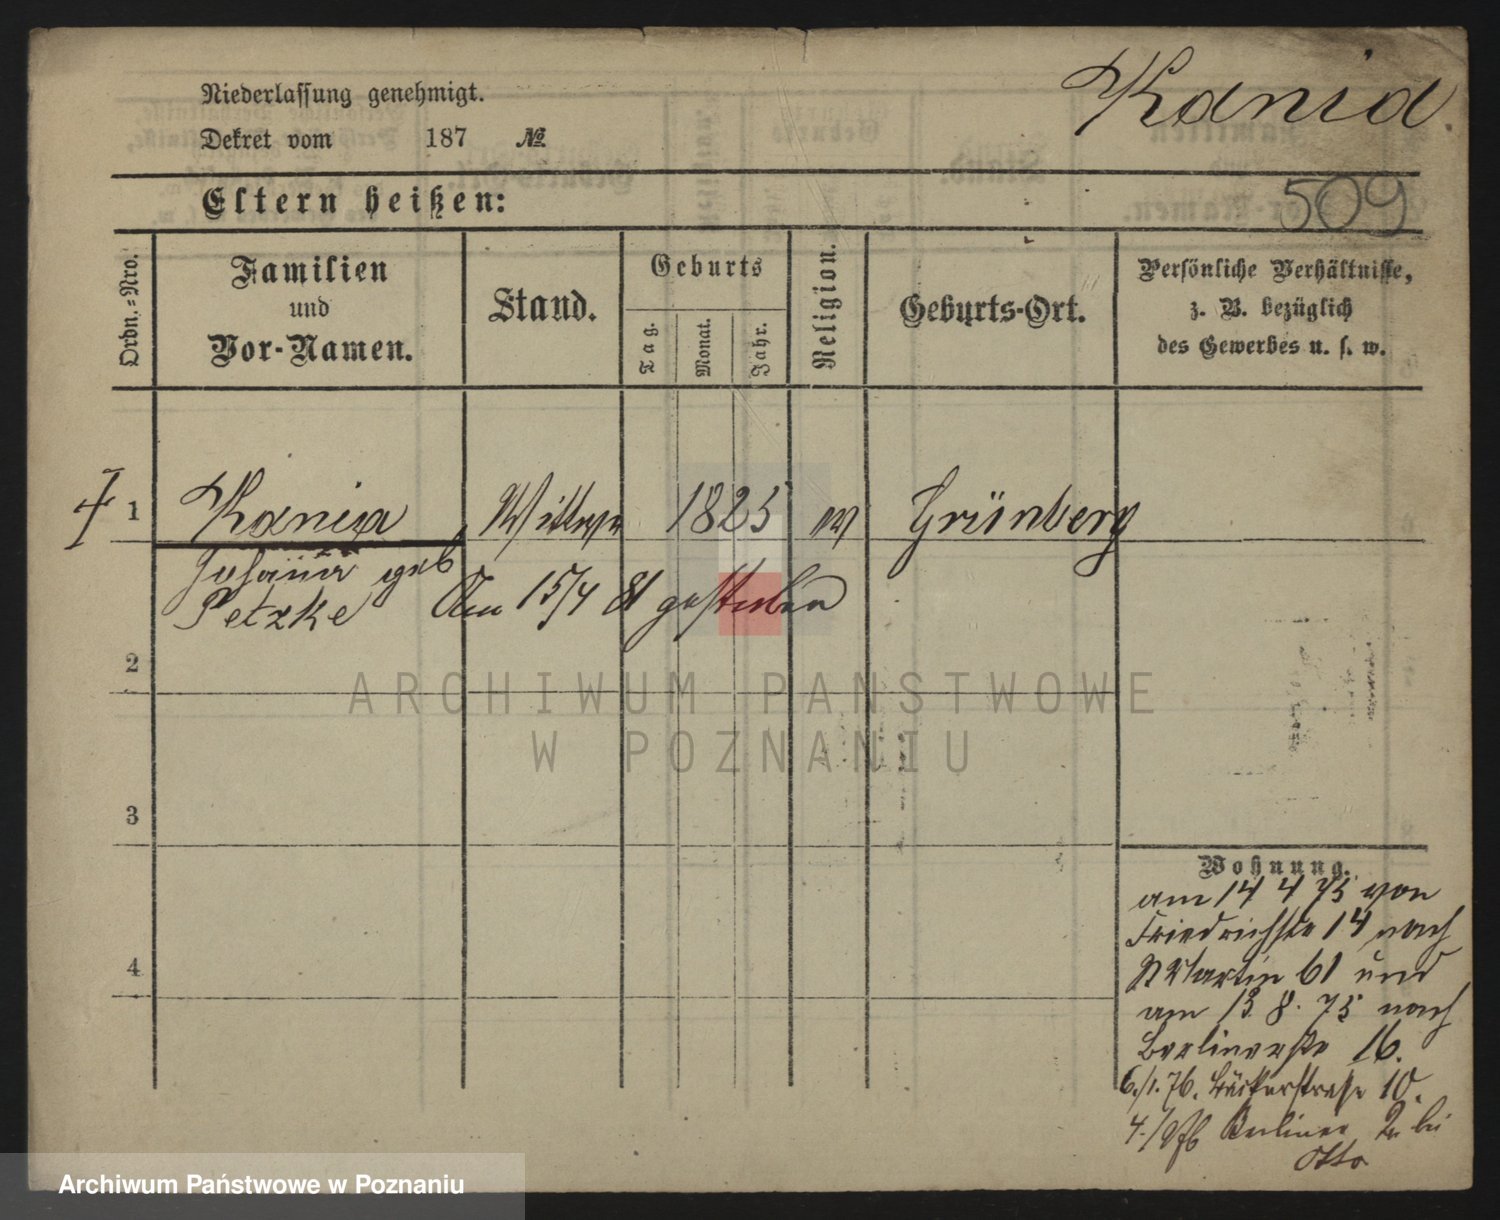 Kania.
Niederlassung genehmigt.
Dekret vom 187 №
509
Eltern heißen:
Ordn.-Nro.
Familien
und
Vor-Namen.
Stand.
Geburts
Tag.
Monat.
Jahr.
Religion.
Geburts-Ort.
Persönliche Verhältnisse,
z. B. bezüglich
des Gewerbes u. s. w.
1 Kania, Wittwe 1825 Grünberg
Johanna geb
Petzke Am 15/4 81 gestorben
2
ARCHIWUM PAŃSTWOWE
W POZNANIU
3
Wohnung.
am 14 4 75 von
Friedrichstr 14 nach
St Martin 61 und
am 13. 8. 75 nach
Berlinerstr 16.
6./1. 76. Bäckerstrasse 10.
4./9 76 Berliner bei
Otto
4
Archiwum Państwowe w Poznaniu